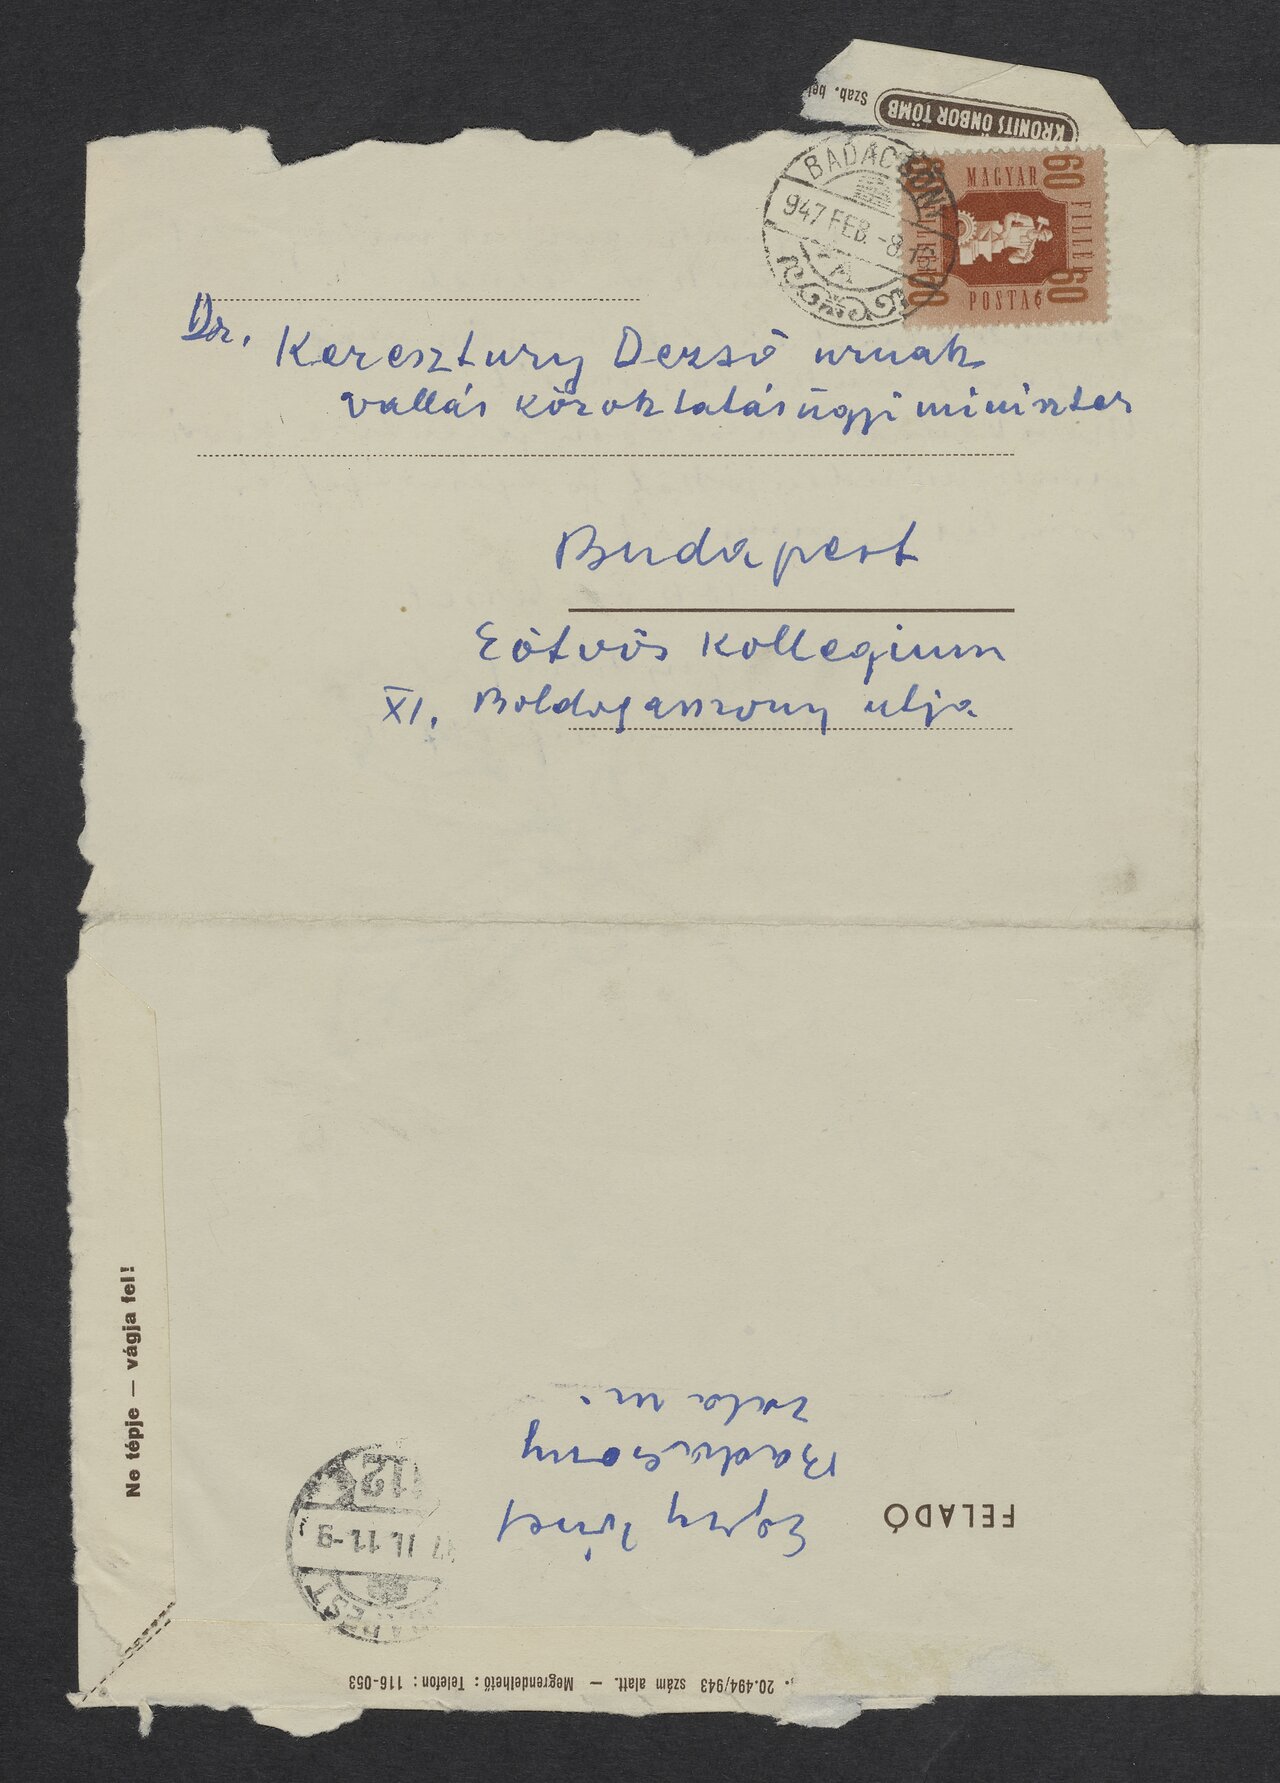 Szab. be
KRONITS ÖNBOR TÖMB
BADACSONY
947 FEB. -8. 12
MAGYAR
60 60
FILLÉR FILLÉR
60 60
POSTA
Dr. Keresztury Dezső urnak
vallás közoktatásügyi miniszter
Budapest
Eötvös Kollegium
XI. Boldogasszony utja
Ne tépje — vágja fel!
FELADÓ
Egry József
Badacsony
Zala m.
BUDAPEST
47 II. 11.-9
112
20.494/943 szám alatt. — Megrendelhető: Telefon: 116-053